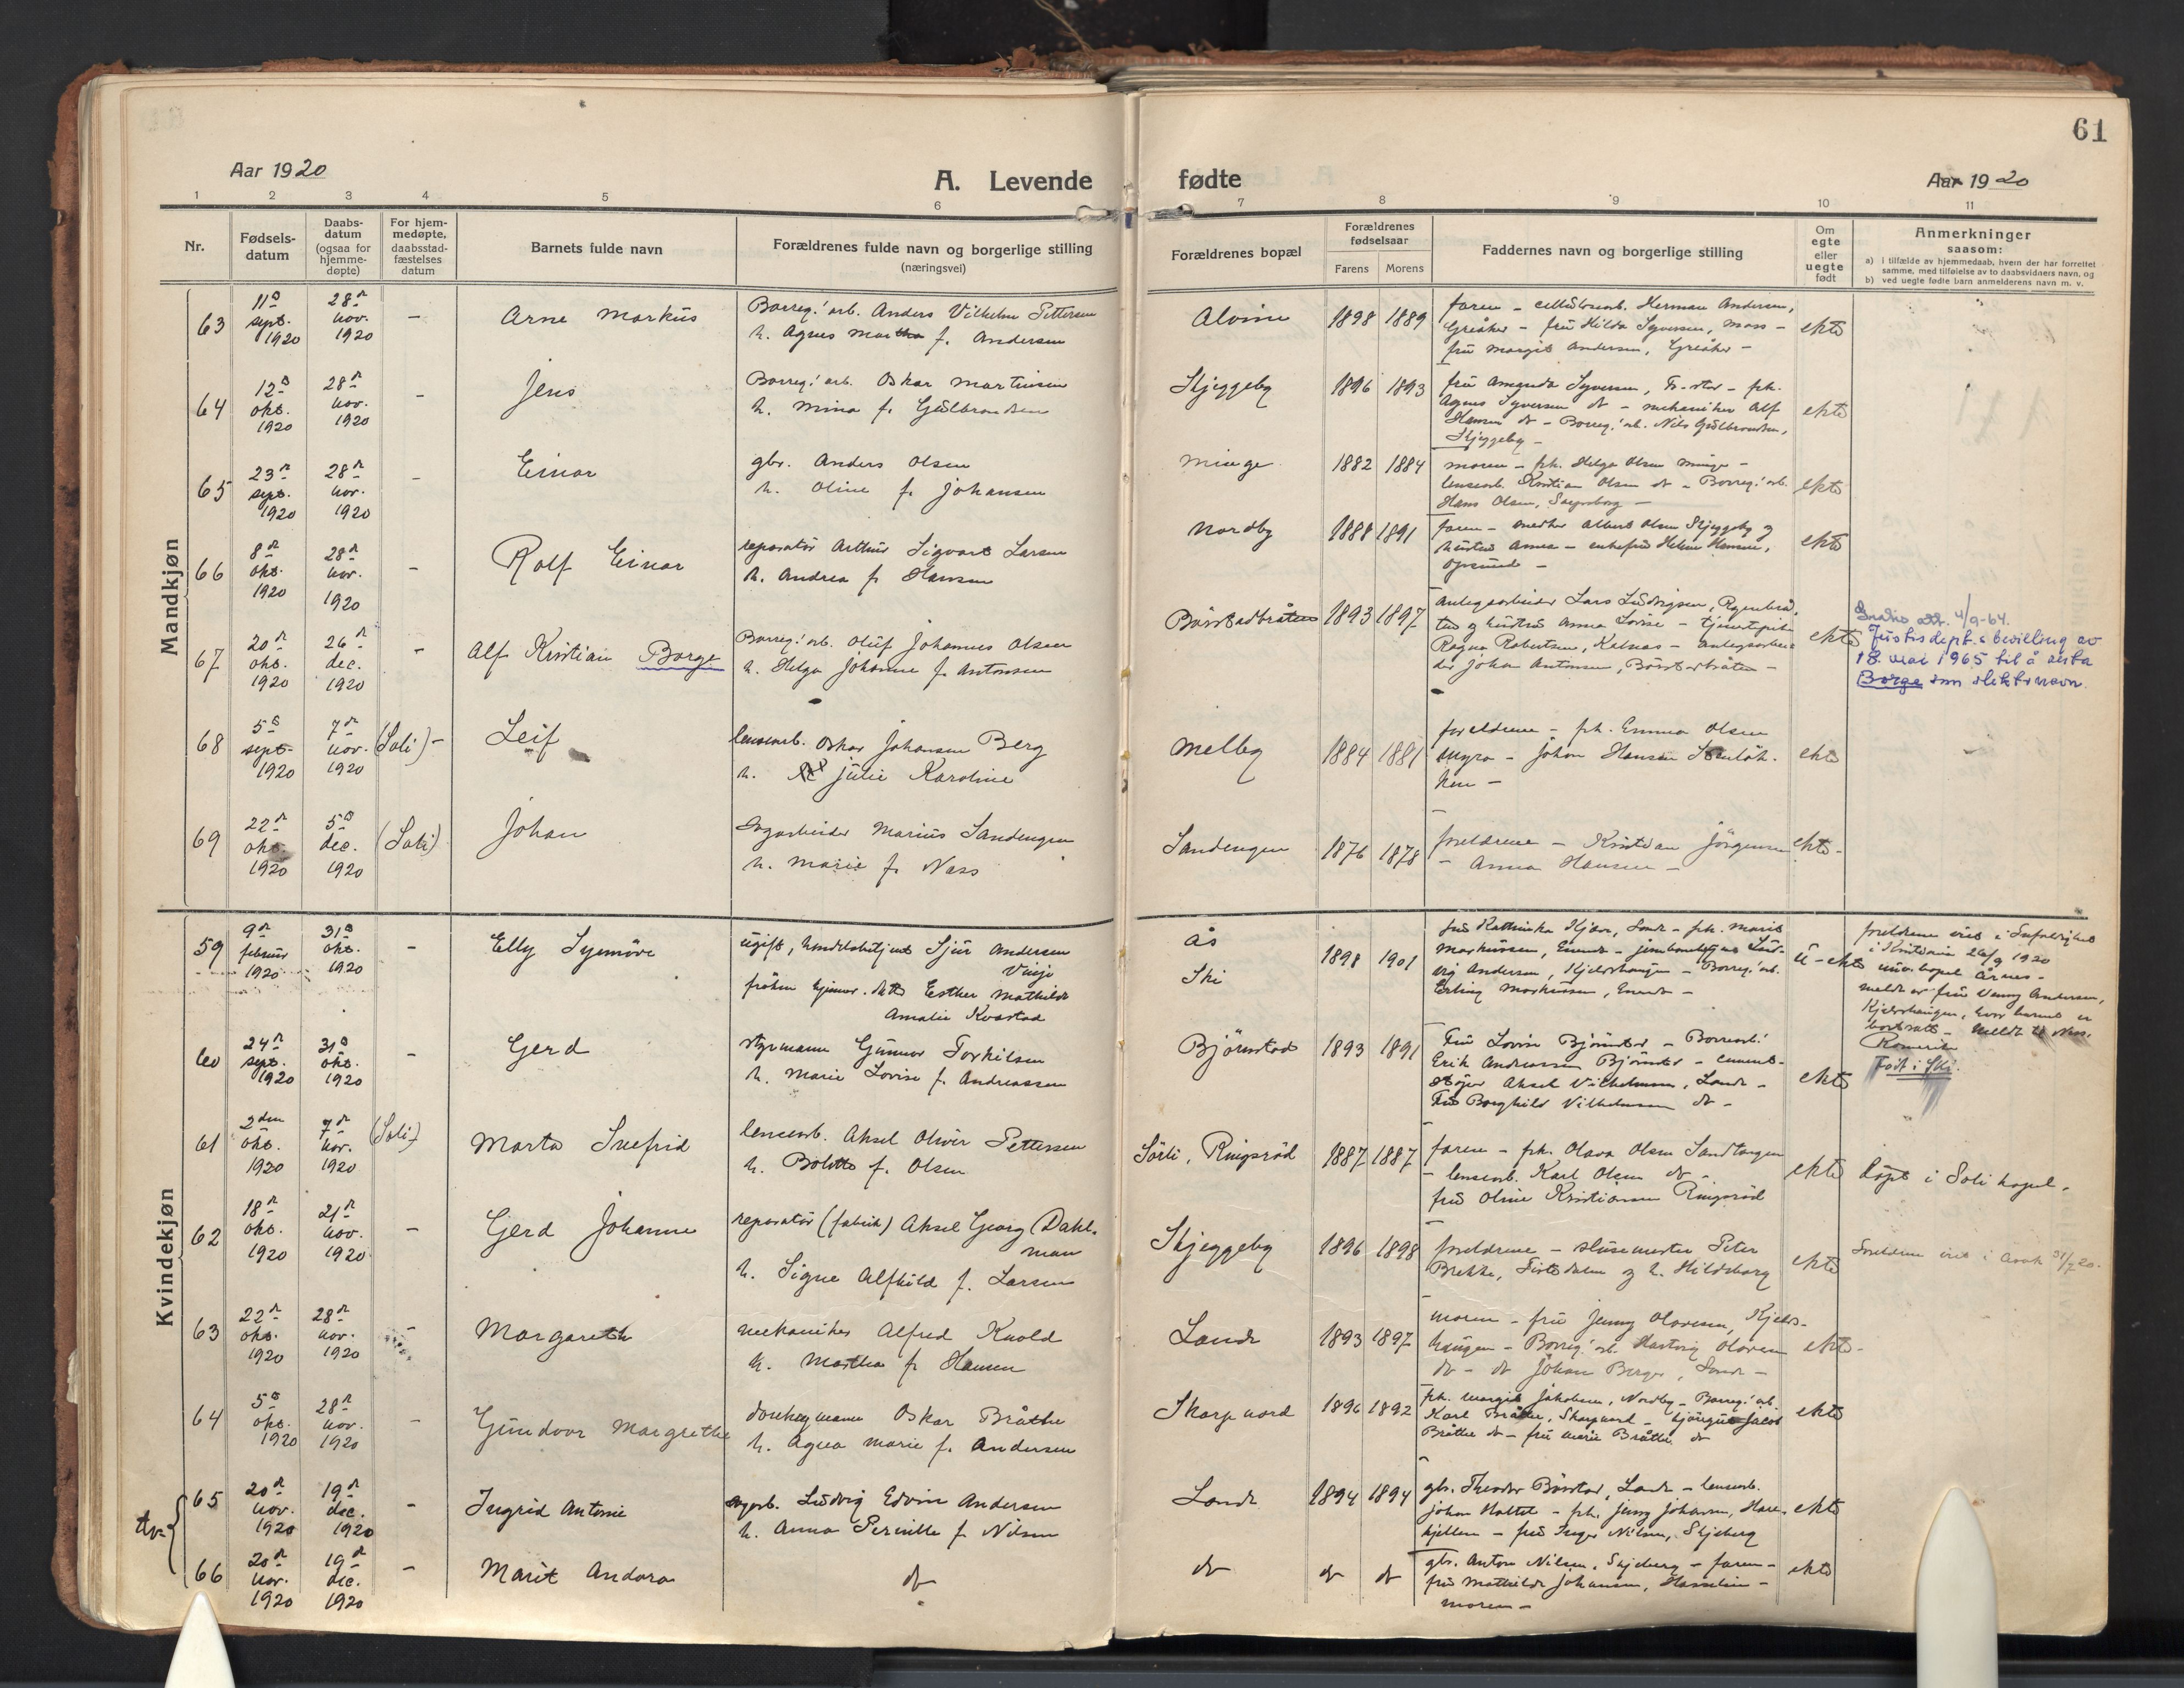 61
Aar 1920
A. Levende fødte
Aar 1920
1 2 3 4 5 6 7 8 9 10 11
Nr.
Fødsels-
datum
Daabs-
datum
(ogsaa for
hjemme-
døpte)
For hjem-
medøpte,
daabsstad-
fæstelses
datum
Barnets fulde navn
Forældrenes fulde navn og borgerlige stilling
(næringsvei)
Forældrenes bopæl
Forældrenes
fødselsaar
Farens Morens
Faddernes navn og borgerlige stilling
Om
egte
eller
uegte
født
Anmerkninger
saasom:
a) i tilfælde av hjemmedaab, hvem der har forrettet
samme, med tilføielse av to daabsvidners navn, og
b) ved uegte fødte barn anmelderens navn m. v.
Mandkjøn
63
11te sept. 1920
28de nov. 1920
-
Arne Markus
Borreg.' arb. Anders Vilhelm Pettersen
h. Agnes Martha f. Andersen
Alvim
1898 1889
faren - cellulosearb. Herman Andersen,
Greåker - fru Hilda Syversen, Moss -
fru Margit Andersen, Greåker -
ekte
64
12te okt. 1920
28de nov. 1920
-
Jens
Borreg.' arb. Oskar Martinsen
h. Mina f. Gulbrandsen
Skjeggeby
1896 1893
fru Amanda Syversen, - frk.
Agnes Syversen do - mekaniker Alf
Hansen do - Borreg.' arb. Nils Gulbrandsen,
Skjeggeby -
ekte
65
23de sept. 1920
28de nov. 1920
-
Einar
gbr. Anders Olsen
h. Oline f. Johansen
Minge
1882 1884
moren - frk. Helga Olsen Minge -
lensearb. Kristian Olsen do - Borreg.' arb.
Hans Olsen, Sarpsborg -
ekte
66
8de okt. 1920
28de nov. 1920
-
Rolf Einar
reparatør Arthur Sigvart Larsen
h. Andrea f. Hansen
Nordby
1888 1891
faren - snekker Albert Olsen Skjeggeby og
hustru Anna - enkefru Helene Hansen,
-
ekte
67
20de okt. 1920
26de dec. 1920
-
Alf Kristian Borge
Borreg.' arb. Oluf Johannes Olsen
h. Helga Johanne f. Antonsen
Börstadbråten
1893 1897
anlegsarbeider Lars Ludvigsen,
og hustru Anna Lovise - tjenestepike
Ragna Robertsen, Kalnes - anlegsarbei-
der Johan Antonsen, Börstadbråten -
ekte
att. 4/9-64.
Justisdept.s bevilling av
18. mai 1965 til å anta
Borge som slektsnavn.
68
5te sept. 1920
7de nov. 1920
(Soli) -
Leif
lensearb. Oskar Johansen Berg
h. Julie Karoline
Melleby
1884 1881
foreldrene - frk. Emma Olsen
Myra - Johan Hansen
-
ekte
69
22de okt. 1920
5te dec. 1920
(Soli)
Johan
Sagarbeider Marius Sandengen
h. Marie f. Næss
Sandengen
1876 1878
foreldrene - Kristian Jörgensen
- Anna Hansen -
ekte -
Kvindekjøn
59
9de februar 1920
31te okt. 1920
-
Elly Synnöve
ugift, handelsbetjent Sjur Andersen
Vinje
fröken Esther Mathilde
Amalie Kvastad
Ås
Ski
1898 1901
fru Kathinka Kjær, Sande - frk. Marie
Markussen, - jernbanebetjent Lud-
vig Andersen, Kjelvshaugen - Borreg.' arb.
Erling Markussen, -
u-ekte
foreldrene viet i
i Kristiania 26/9 1920
nuv. bopel Årnes -
meldt av fru Venny Andersen,
Kjelvshaugen, hvor barnet er
bortsatt - meldt til Nes,
Romerike
Født i Ski.
60
24de sept. 1920
31te okt. 1920
-
Gerd
styrmann Gunnar Torkilsen
h. Marie Lovise f. Andreassen
Björnstad
1893 1891
Fru Lovise Björnstad - Borreg.
Erik Andreassen Björnstad - cement-
støper Aksel Vilhelmsen, Sande -
Fru Borghild Vilhelmsen do -
ekte
61
2den okt. 1920
7de nov. 1920
(Soli)
Marta Snefrid
lensearb. Aksel Oliver Pettersen
h. Bolette f. Olsen
Sörli, Ringsröd
1887 1887
faren - frk. Olava Olsen Sandtangen
- lensearb. Karl Olsen do -
fru Oline Kristiansen Ringsröd
ekte
Döpt i Soli kapel.
62
18de okt. 1920
21de nov. 1920
-
Gerd Johanne
reparatör (fabrik) Aksel Georg Dahl-
man
h. Signe Alfhild f. Larsen
Skjeggeby
1896 1898
foreldrene - slusemester Peter
Brekke, Tistedalen og h. Hildeborg
ekte
Foreldrene viet i 31/7 20.
63
22de okt. 1920
28de nov. 1920
-
Margareth
mekaniker Alfred Knold
h. Martha f. Hansen
Sande
1893 1897
moren - fru Jenny Olavesen, Kjelvs-
haugen - Borreg.' arb. Hartvig Olavesen
do - do Johan Berger, Sande -
ekte -
64
5te okt. 1920
28de nov. 1920
-
Gundvor Margrethe
donkeymann Oskar Bråthe
h. Agnea Marie f. Andersen
Skarpnord
1896 1892
frk. Margit Jakobsen, Nordby - Borreg.' arb.
Karl Bråthe, Skarpnord - sjöngut Jacob
Bråthe do - fru Marie Bråthe do
ekte
65
20de nov. 1920
19de dec. 1920
-
Ingrid Antonie
sagarb. Ludvig Edvin Andersen
h. Anna Pernille f. Nilsen
Sande
1894 1894
gbr. Theodor Börstad, Sande - lensearb.
Johan Holtet - frk. Jenny Johansen, Hare-
kjellen - fru Inger Nilsen, Skjeberg
ekte
66
20de nov. 1920
19de dec. 1920
-
Marit Andora
do
do
do do
gbr. Anton Nilsen, Skjeberg - faren -
fru Mathilde Johansen, -
moren -
ekte